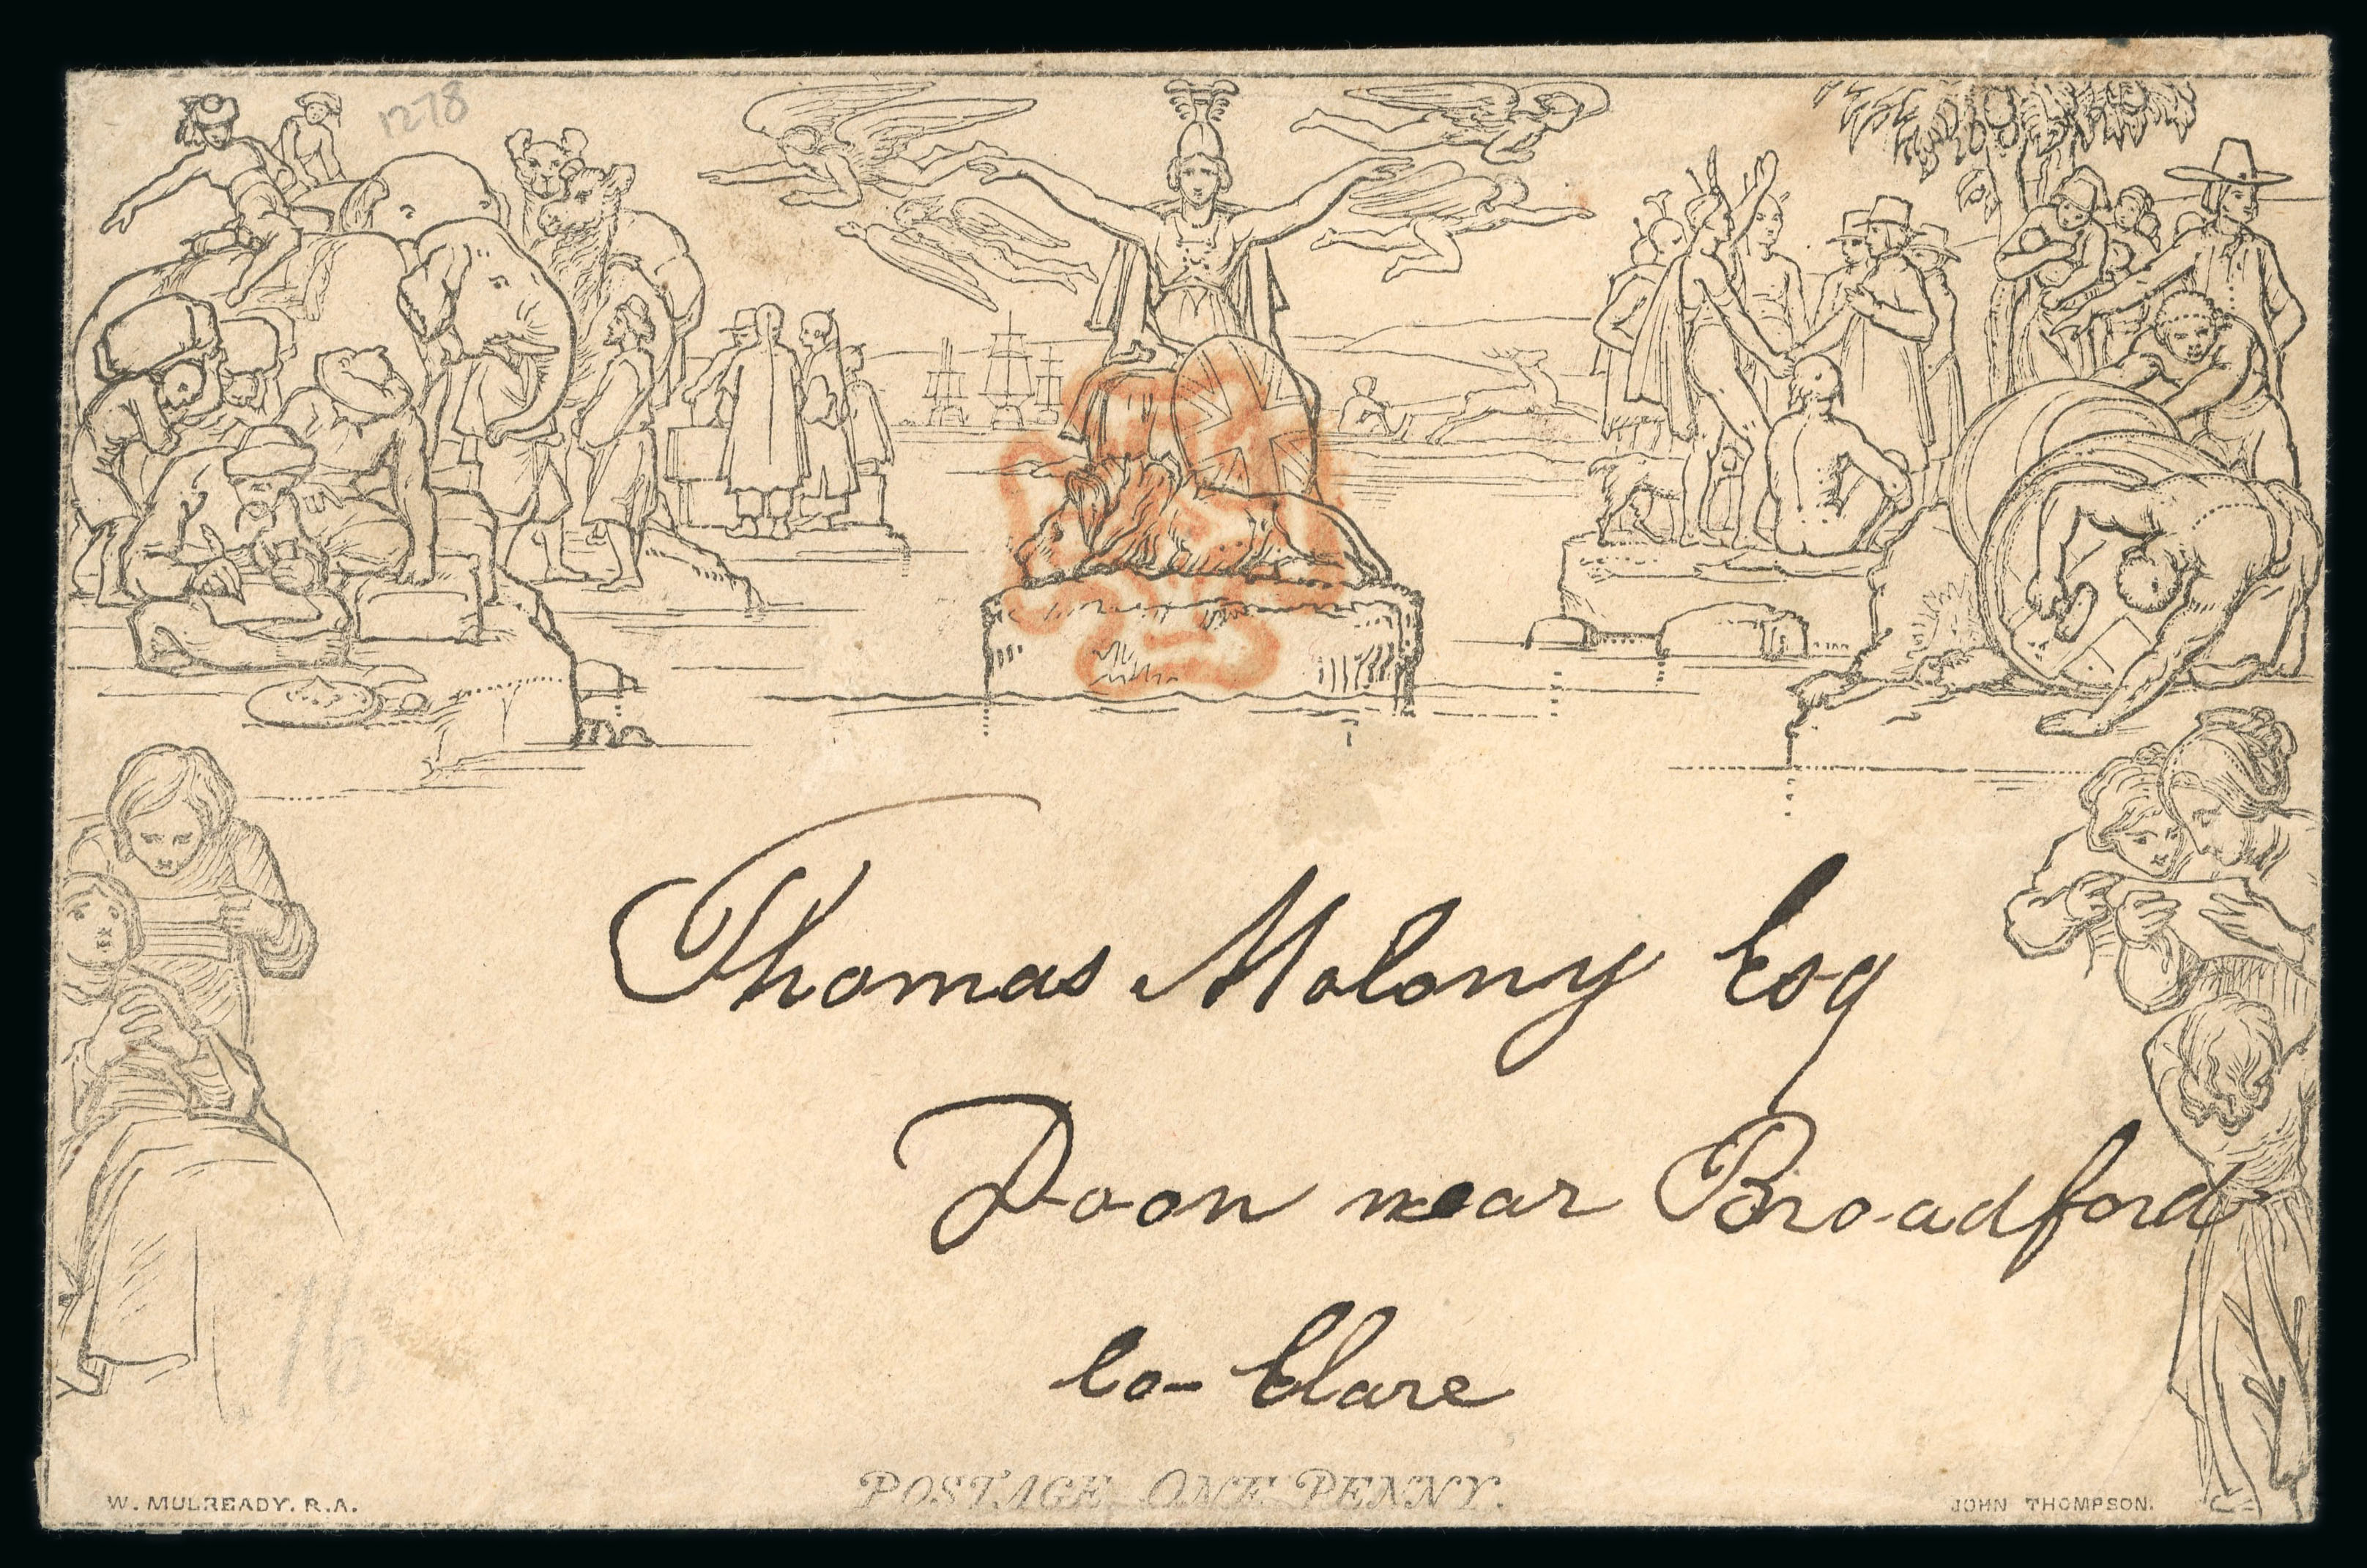 1278
Thomas Molony Esq
Doon near Broadford
Co- Clare
16
POSTAGE ONE PENNY.
W. MULREADY. R.A.
JOHN THOMPSON.